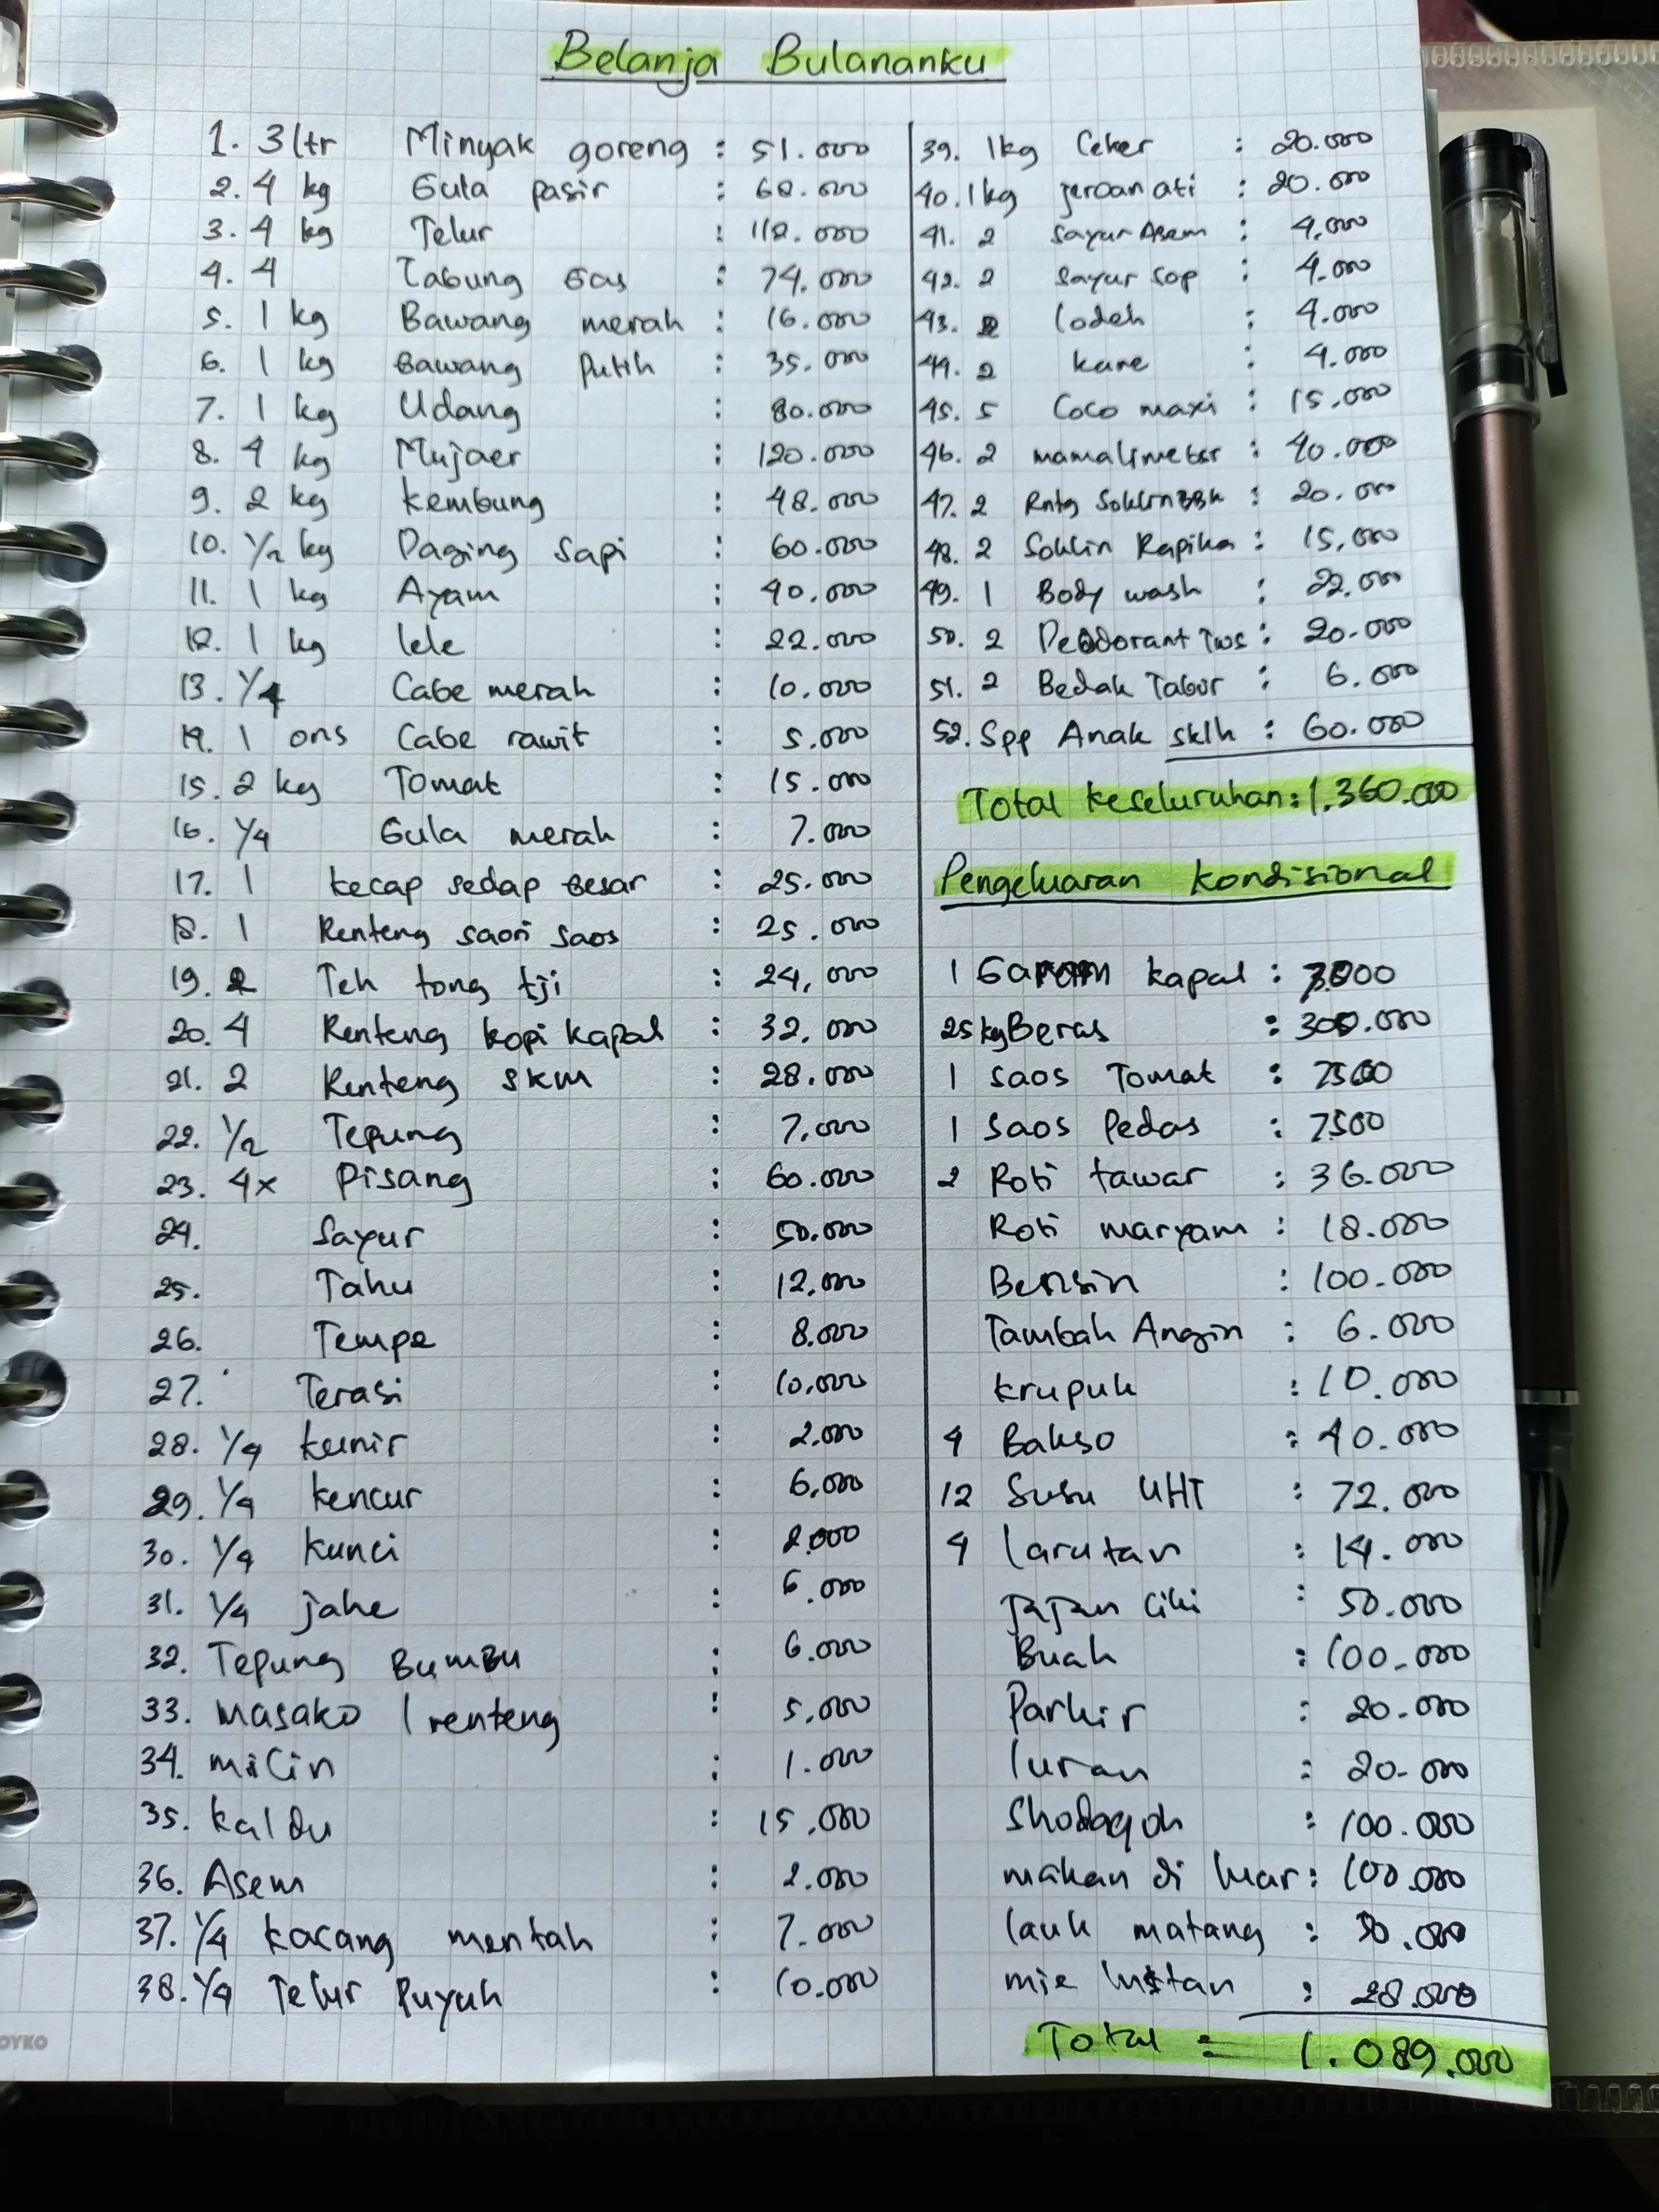 Belanja Bulananku
1. 3 ltr Minyak goreng : 51.000
2. 4 kg Gula pasir : 68.000
3. 4 kg Telur : 112.000
4. 4 Tabung Gas : 74.000
5. 1 kg Bawang merah : 16.000
6. 1 kg Bawang Putih : 35.000
7. 1 kg Udang : 80.000
8. 4 kg Mujaer : 120.000
9. 2 kg Kembung : 48.000
10. 1/2 kg Daging Sapi : 60.000
11. 1 kg Ayam : 40.000
12. 1 kg lele : 22.000
13. 1/4 Cabe merah : 10.000
14. 1 ons Cabe rawit : 5.000
15. 2 kg Tomat : 15.000
16. 1/4 Gula merah : 7.000
17. 1 kecap sedap besar : 25.000
18. 1 Renteng saori saos : 25.000
19. 2 Teh tong tji : 24.000
20. 4 Renteng kopi kapal : 32.000
21. 2 Renteng SKM : 28.000
22. 1/2 Tepung : 7.000
23. 4x Pisang : 60.000
24. Sayur : 50.000
25. Tahu : 12.000
26. Tempe : 8.000
27. Terasi : 10.000
28. 1/4 kunir : 2.000
29. 1/4 kencur : 6.000
30. 1/4 kunci : 2.000
31. 1/4 jahe : 6.000
32. Tepung Bumbu : 6.000
33. Masako 1 renteng : 5.000
34. micin : 1.000
35. kaldu : 15.000
36. Asem : 2.000
37. 1/4 kacang mentah : 7.000
38. 1/4 Telur Puyuh : 10.000
39. 1kg Ceker : 20.000
40. 1kg jeroan ati : 20.000
41. 2 Sayur Asem : 4.000
42. 2 Sayur Sop : 4.000
43. 2 lodeh : 4.000
44. 2 kare : 4.000
45. 5 Coco maxi : 15.000
46. 2 mamalimeber : 40.000
47. 2 Rntg Soklin : 20.000
48. 2 Soklin Rapika : 15.000
49. 1 Body wash : 22.000
50. 2 Deodorant Tws : 20.000
51. 2 Bedak Tabur : 6.000
52. Spp Anak sklh : 60.000
Total keseluruhan : 1.360.000
Pengeluaran kondisional
1 Garam kapal :
25kg Beras : 300.000
1 Saos Tomat : 7500
1 Saos Pedas : 7500
2 Roti tawar : 36.000
Roti maryam : 18.000
Bensin : 100.000
Tambah Angin : 6.000
krupuk : 10.000
4 Bakso : 40.000
12 Susu UHT : 72.000
4 larutan : 14.000
jajan Ciki : 50.000
Buah : 100.000
Parkir : 20.000
Iuran : 20.000
Shodaqoh : 100.000
makan di luar : 100.000
lauk matang : 50.000
mie Instan : 28.000
Total = 1.089.000
OYKO